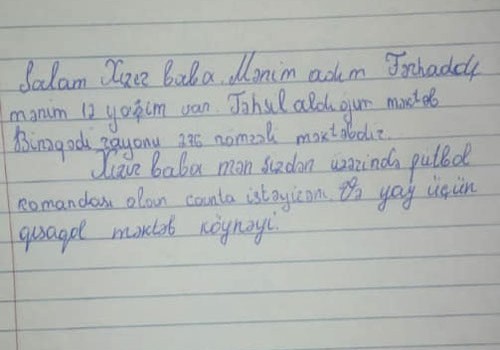 Salam Xızır baba. Mənim adım Fərhaddır
mənim 12 yaşım var. Təhsil aldığım məktəb
Binəqədi rayonu 276 nömrəli məktəbdir.
Xızır baba mən sizdən üzərində futbol
komandası olan çanta istəyirəm. Və yay üçün
qısaqol məktəb köynəyi.